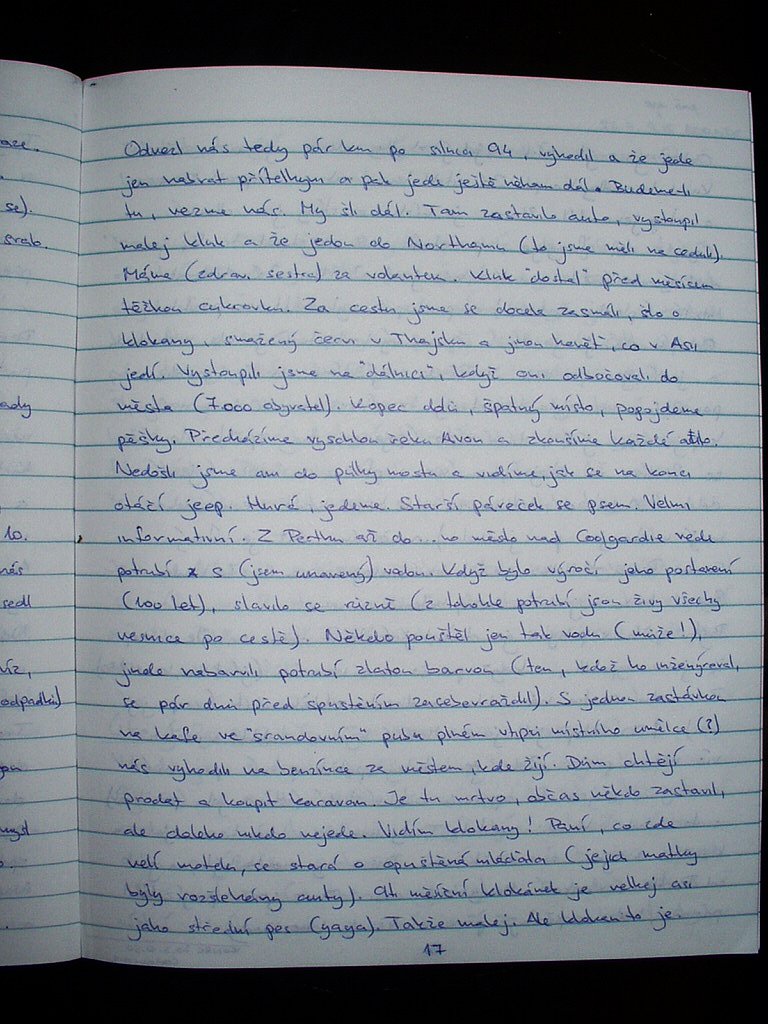 aze.
se).
srab.
ady
10.
nás
sedl
víz,
odpadků)
Odvezl nás tedy pár km po silnici 94, vyhodil a že jede
jen nabrat přítelkyni a pak jede ještě někam dál. Budeme-li
tu, vezme nás. My šli dál. Tam zastavilo auto, vystoupil
malej kluk a že jedou do Northamu (to jsme měli na ceduli).
Máma (zdrav. sestra) za volantem. Kluk "dostal" před měsícem
těžkou cukrovku. Za cestu jsme se docela zasmáli, šlo o
klokany, smažený červi v Thajsku a jinou havěť, co v Asii
jedí. Vystoupili jsme na "dálnici", když oni odbočovali do
města (7.000 obyvatel). Kopec dolů, špatný místo, popojdeme
pěšky. Přecházíme vyschlou řeku Avon a zkoušíme každé auto.
Nedošli jsme ani do půlky mostu a vidíme, jak se na konci
otáčí jeep. Hurá, jedeme. Starší páreček se psem. Velmi
informativní. Z Perthu až do ... no město nad Coolgardie vede
potrubí s (jsem unavený) vodou. Když bylo výročí jeho postavení
(100 let), slavilo se různě (z tohohle potrubí jsou živy všechy
vesnice po cestě). Někdo pouštěl jen tak vodu (může!),
jinde nabarvili potrubí zlatou barvou (ten, kdož ho inženýroval,
se pár dnů před spuštěním zasebevraždil). S jednou zastávkou
na kafe ve "srandovním" pubu plném vtipů místního umělce (?)
nás vyhodili na benzínce za městem, kde žijí. Dům chtějí
prodat a koupit karavan. Je tu mrtvo, občas někdo zastaví,
ale daleko nikdo nejede. Vidím klokany! Paní, co zde
velí motelu, se stará o opuštěná mláďata (jejich matky
byly rozšlehány auty). 9ti měsíční klokánek je velkej asi
jako střední pes (yaya). Takže malej. Ale klokan to je.
17